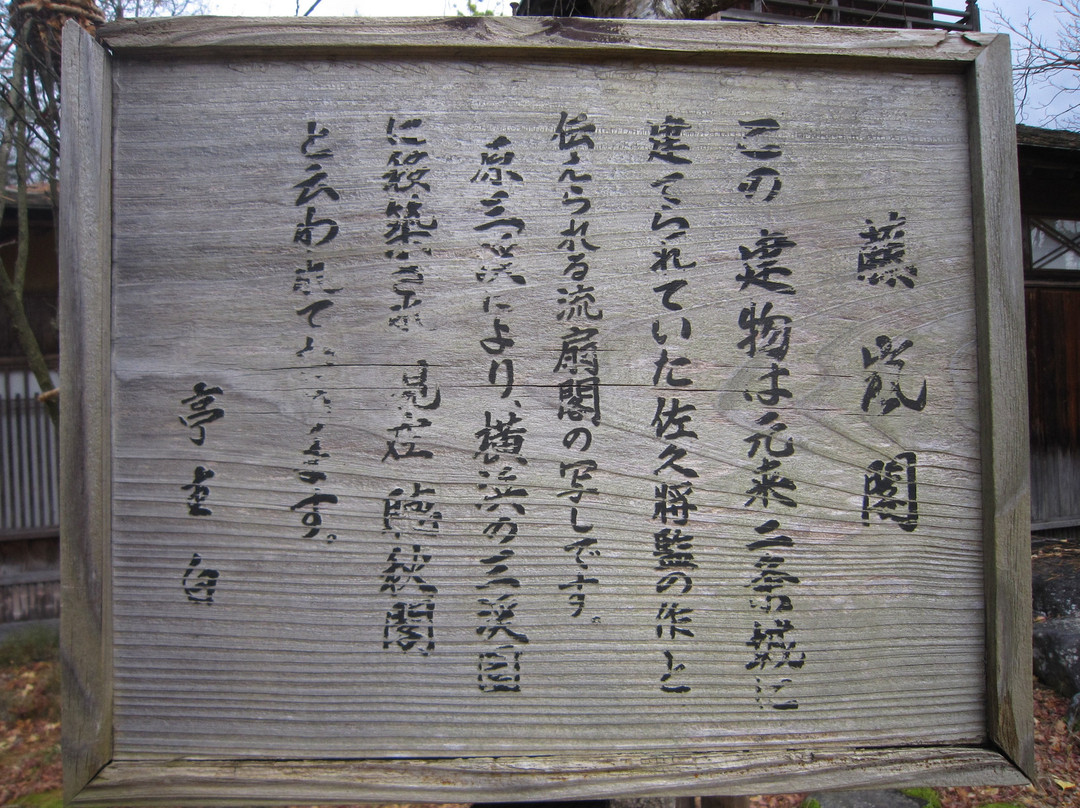 蘇嵐閣
この建物は元来二条城に
建てられていた佐久将監の作と
伝えられる流扇閣の写しです。
原三渓により、横浜の三渓園
に移築され 現在 聴秋閣
と云われております。
亭主白